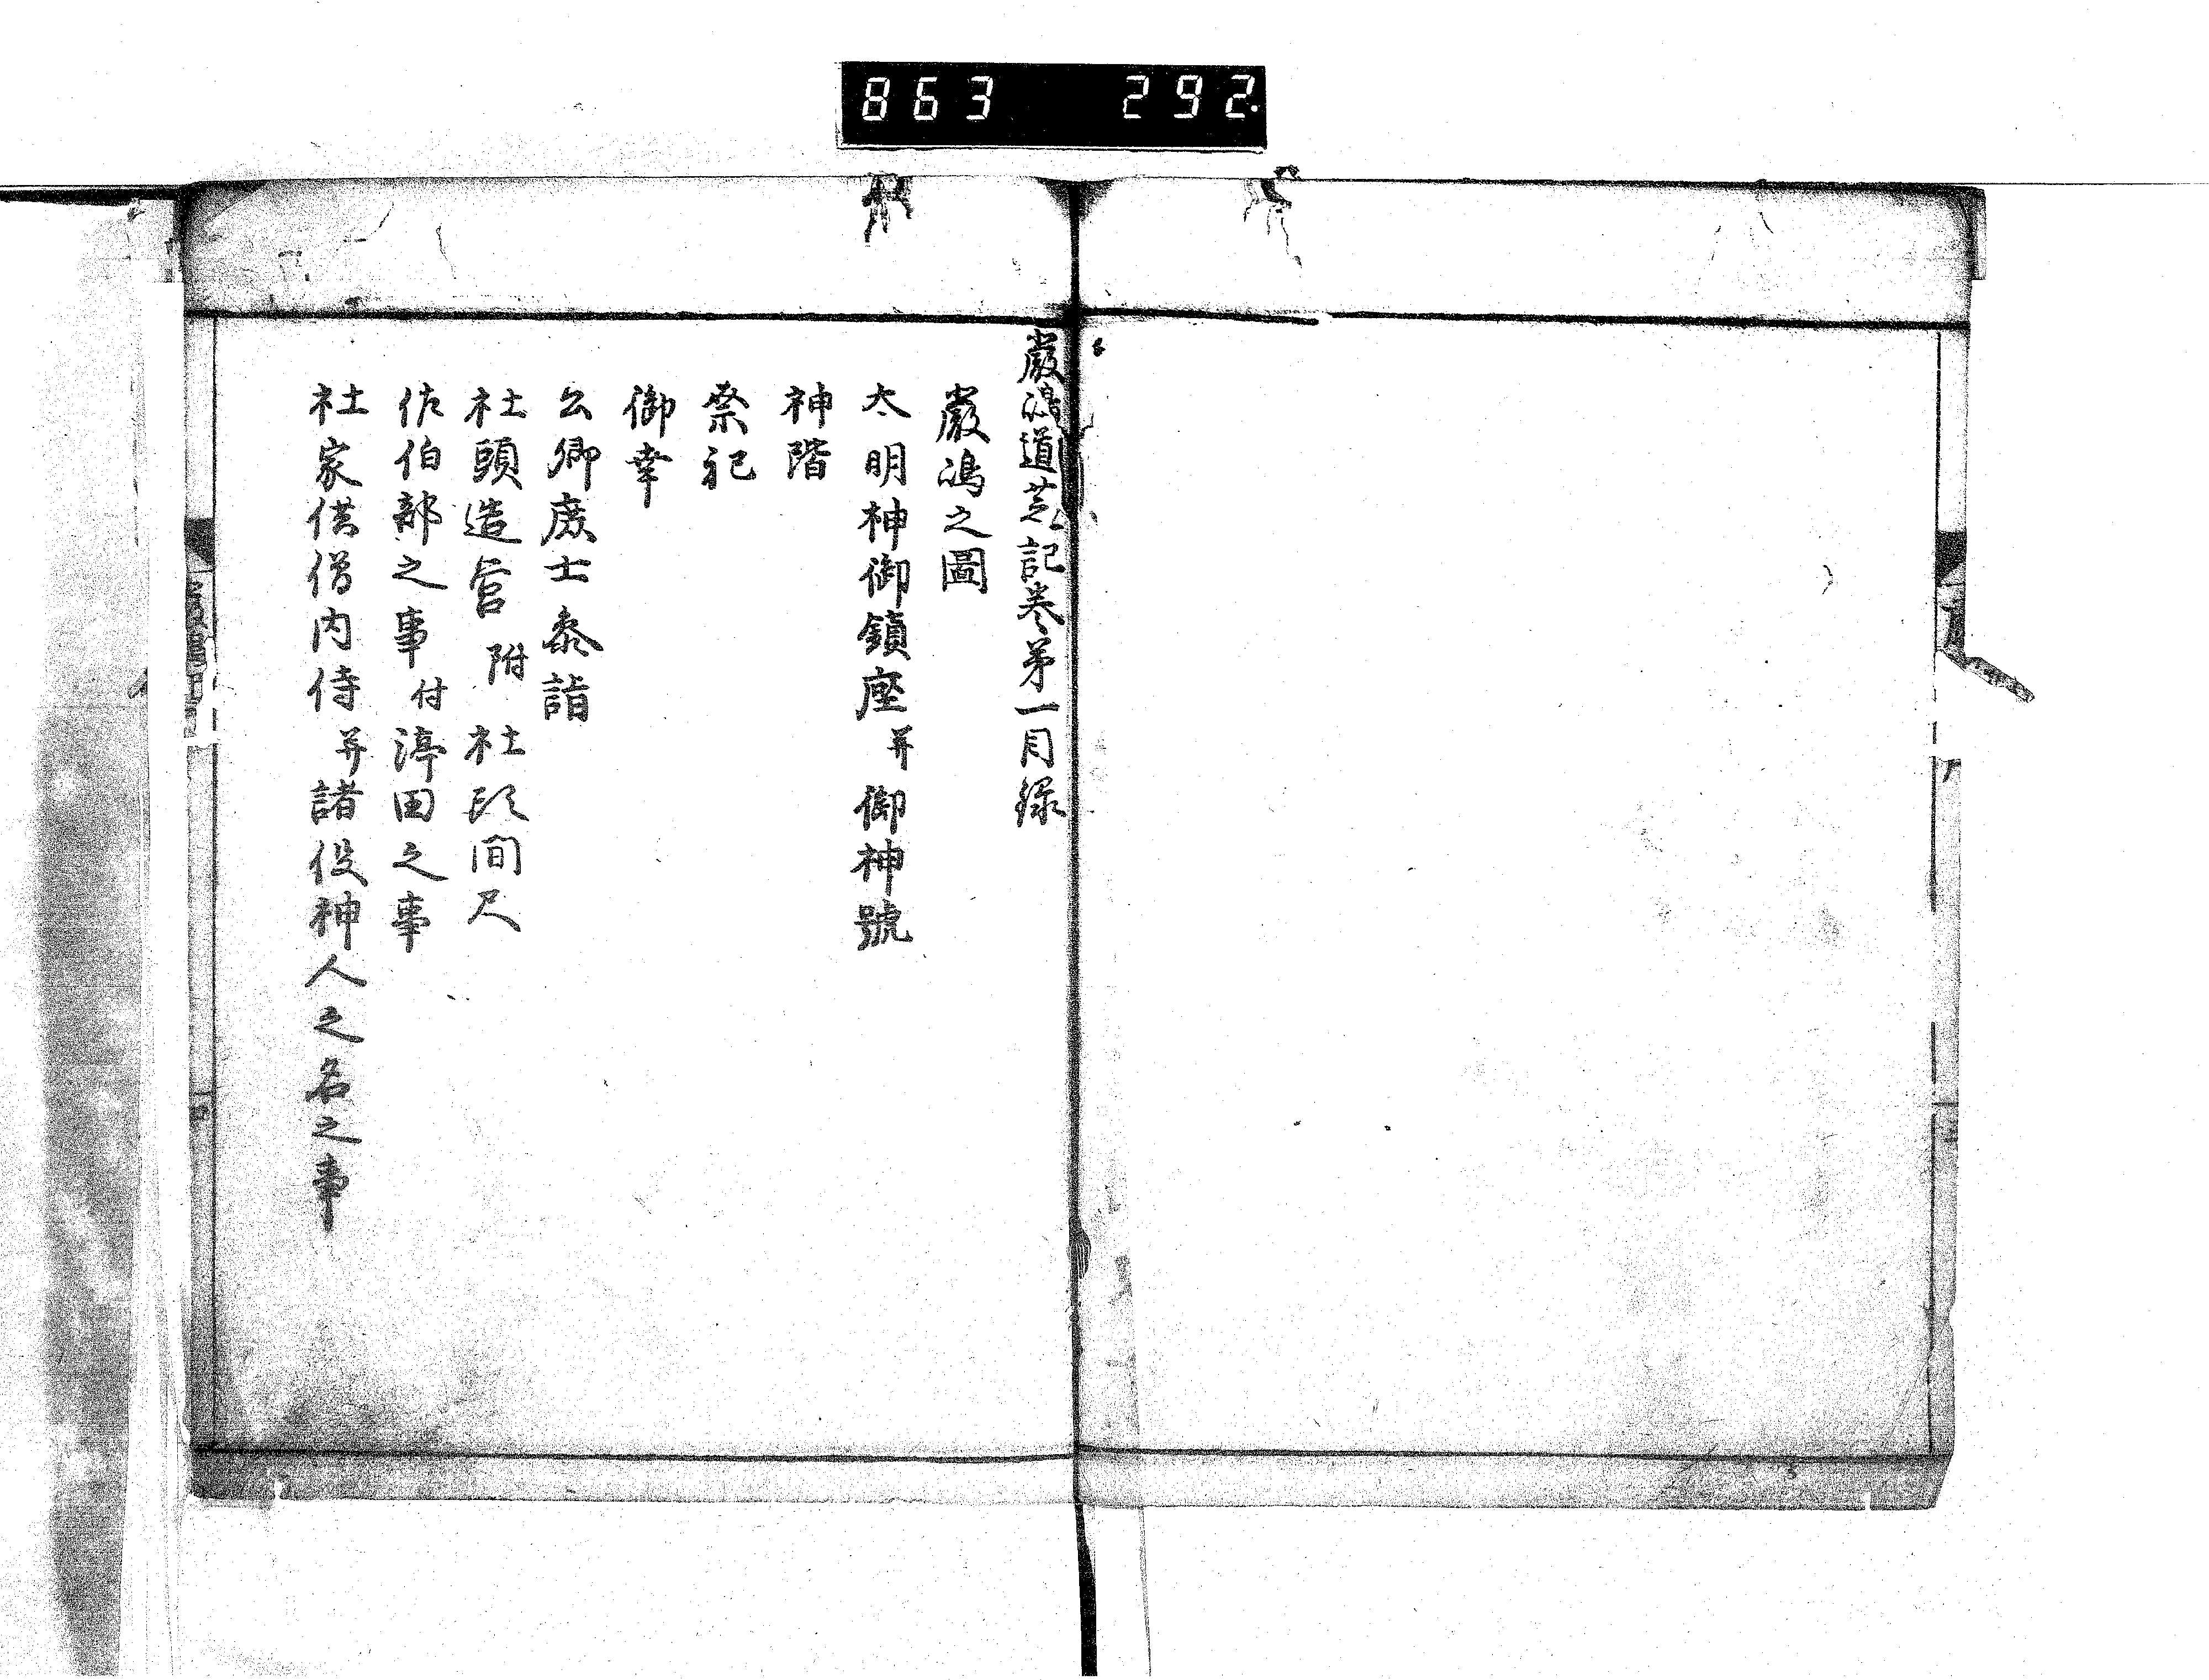 863 292
嚴嶋道芝記卷第一目録
嚴嶋之圖
太明神御鎮座并御神號
神階
祭祀
御幸
公卿庶士叅詣
社頭造營附社頭間尺
佐伯部之事付渟田之事
社家供僧内侍并諸役神人之名之事